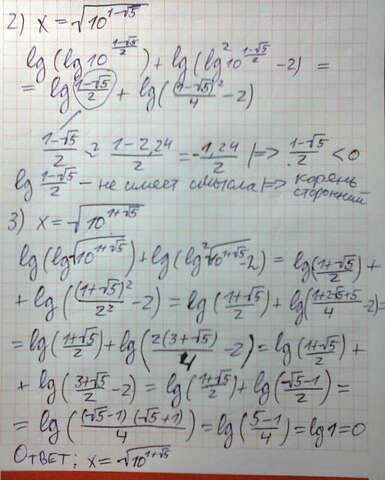 2) x = √(10^(1-√5))
lg(lg 10^((1-√5)/2)) + lg(lg² 10^((1-√5)/2) - 2) =
= lg (1-√5)/2 + lg((1-√5)²/4 - 2)
(1-√5)/2 ≈ (1-2,24)/2 = -1,24/2 |⇒ (1-√5)/2 < 0
lg (1-√5)/2 – не имеет смысла |⇒ корень сторонний
3) x = √(10^(1+√5))
lg(lg√(10^(1+√5))) + lg(lg²√(10^(1+√5)) - 2) = lg((1+√5)/2) +
+ lg((1+√5)²/2² - 2) = lg((1+√5)/2) + lg((1+2√5+5)/4 - 2) =
= lg((1+√5)/2) + lg(2(3+√5)/4 - 2) = lg((1+√5)/2) +
+ lg((3+√5)/2 - 2) = lg((1+√5)/2) + lg((√5-1)/2) =
= lg((√5-1)(√5+1)/4) = lg((5-1)/4) = lg 1 = 0
Ответ: x = √(10^(1+√5))